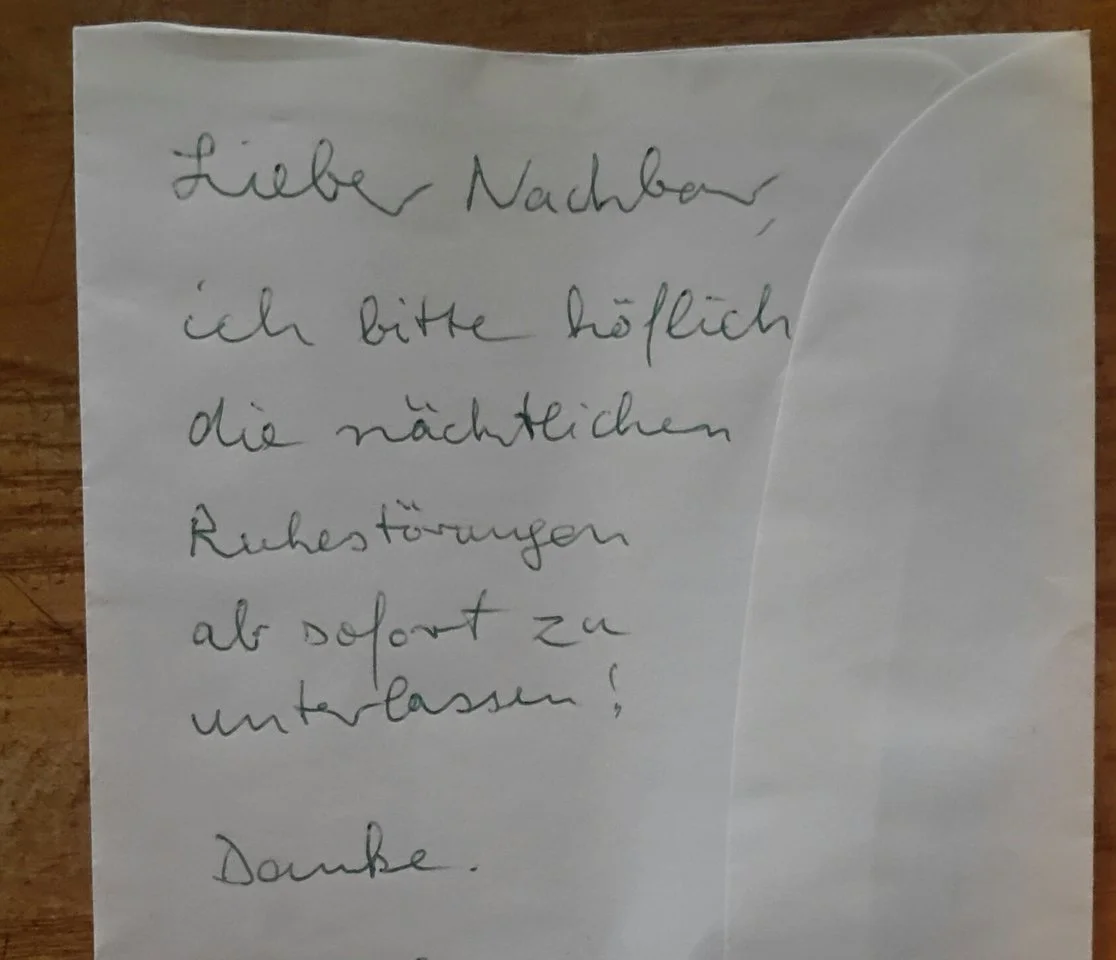 Lieber Nachbar,
ich bitte höflich
die nächtlichen
Ruhestörungen
ab sofort zu
unterlassen!
Danke.